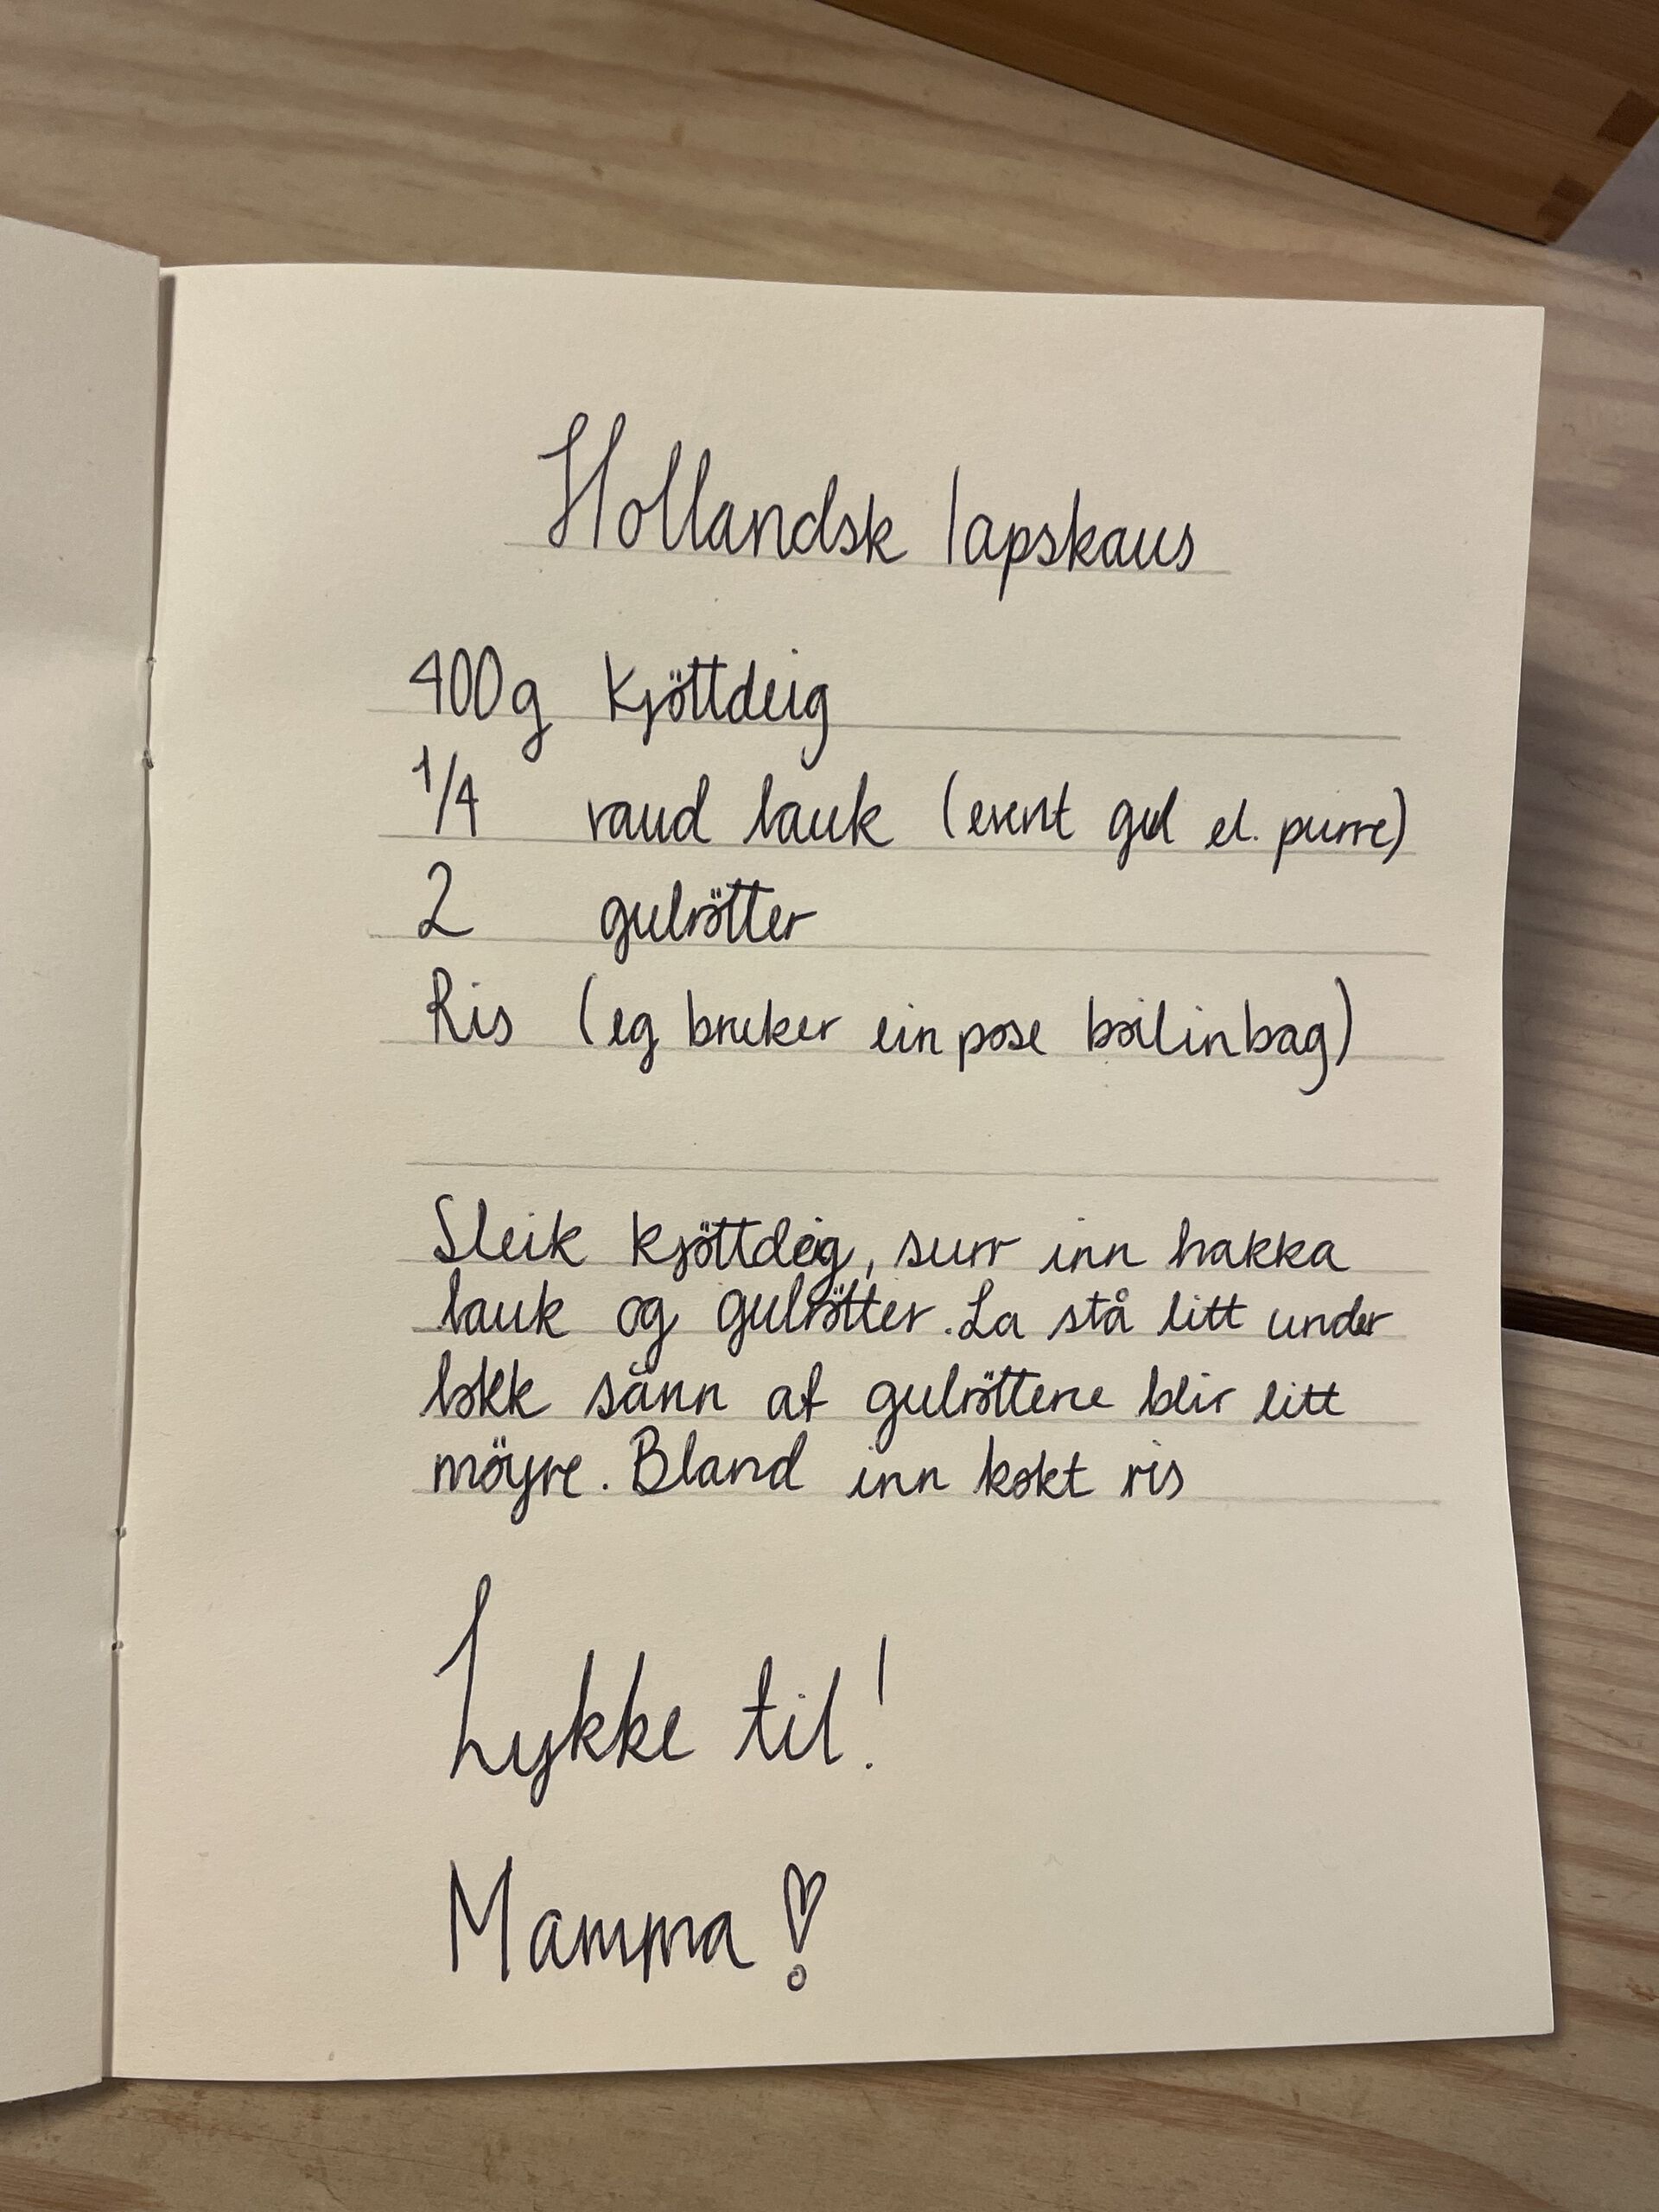 Hollandsk lapskaus
400g kjöttdeig
1/4 raud lauk (event gul el. purre)
2 gulrötter
Ris (eg bruker ein pose boilinbag)
Steik kjöttdeig, surr inn hakka
lauk og gulrötter. La stå litt under
lokk sånn at gulröttene blir litt
möyre. Bland inn kokt ris
Lykke til!
Mamma